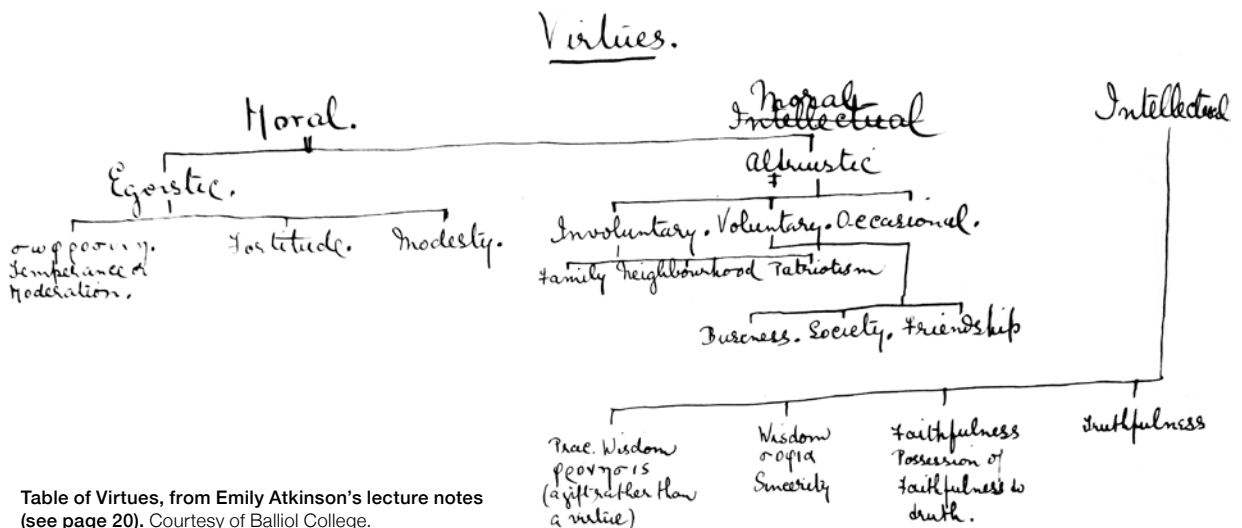 Virtues.
Moral.
Moral
Intellectual
Intellectual
Egoistic.
Altruistic
σωφροσυνη.
Temperance or
Moderation.
Fortitude.
Modesty.
Involuntary. Voluntary. Occasional.
Family Neighbourhood Patriotism
Business. Society. Friendship
Prac. Wisdom
φρονησις
(a gift rather than
a virtue)
Wisdom
σοφια
Sincerity
Faithfulness
Possession of
Faithfulness to
truth.
Truthfulness
Table of Virtues, from Emily Atkinson's lecture notes
(see page 20). Courtesy of Balliol College.